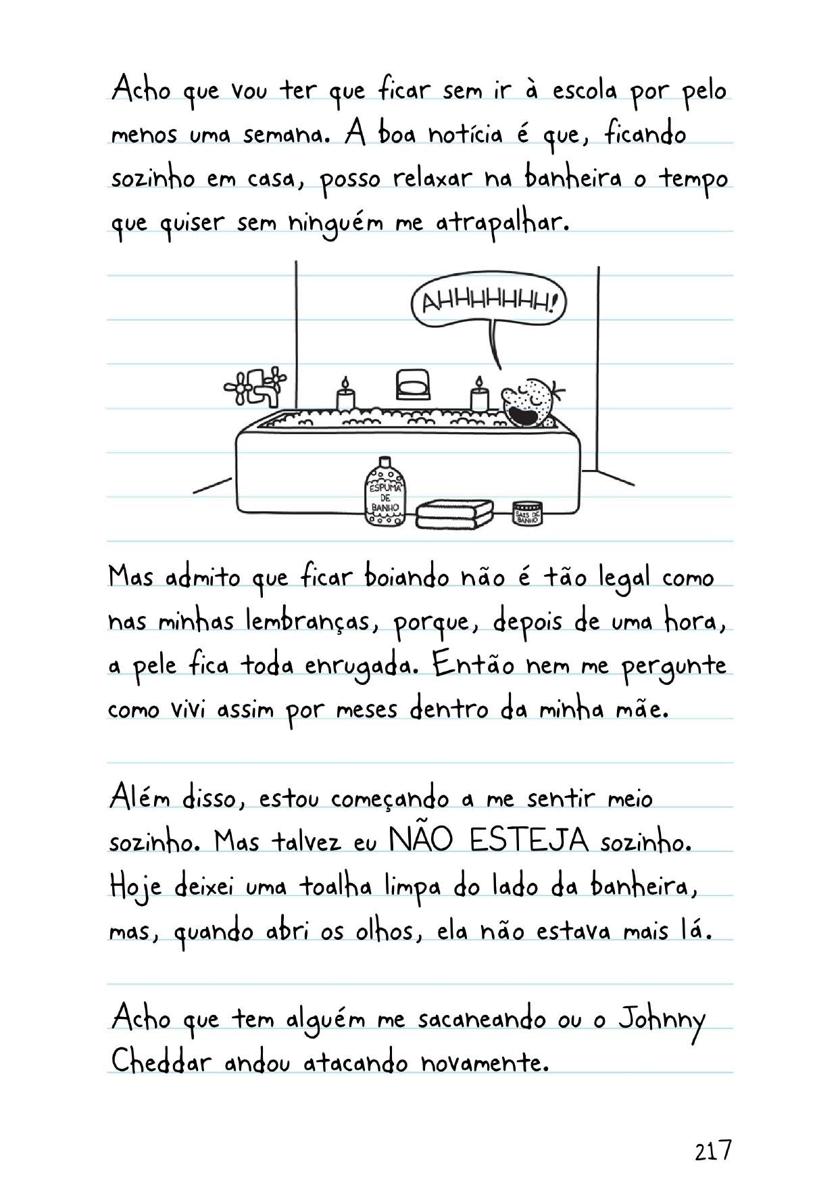 Acho que vou ter que ficar sem ir à escola por pelo
menos uma semana. A boa notícia é que, ficando
sozinho em casa, posso relaxar na banheira o tempo
que quiser sem ninguém me atrapalhar.
AHHHHHHH!
ESPUMA
DE
BANHO
SAIS DE
BANHO
Mas admito que ficar boiando não é tão legal como
nas minhas lembranças, porque, depois de uma hora,
a pele fica toda enrugada. Então nem me pergunte
como vivi assim por meses dentro da minha mãe.
Além disso, estou começando a me sentir meio
sozinho. Mas talvez eu NÃO ESTEJA sozinho.
Hoje deixei uma toalha limpa do lado da banheira,
mas, quando abri os olhos, ela não estava mais lá.
Acho que tem alguém me sacaneando ou o Johnny
Cheddar andou atacando novamente.
217